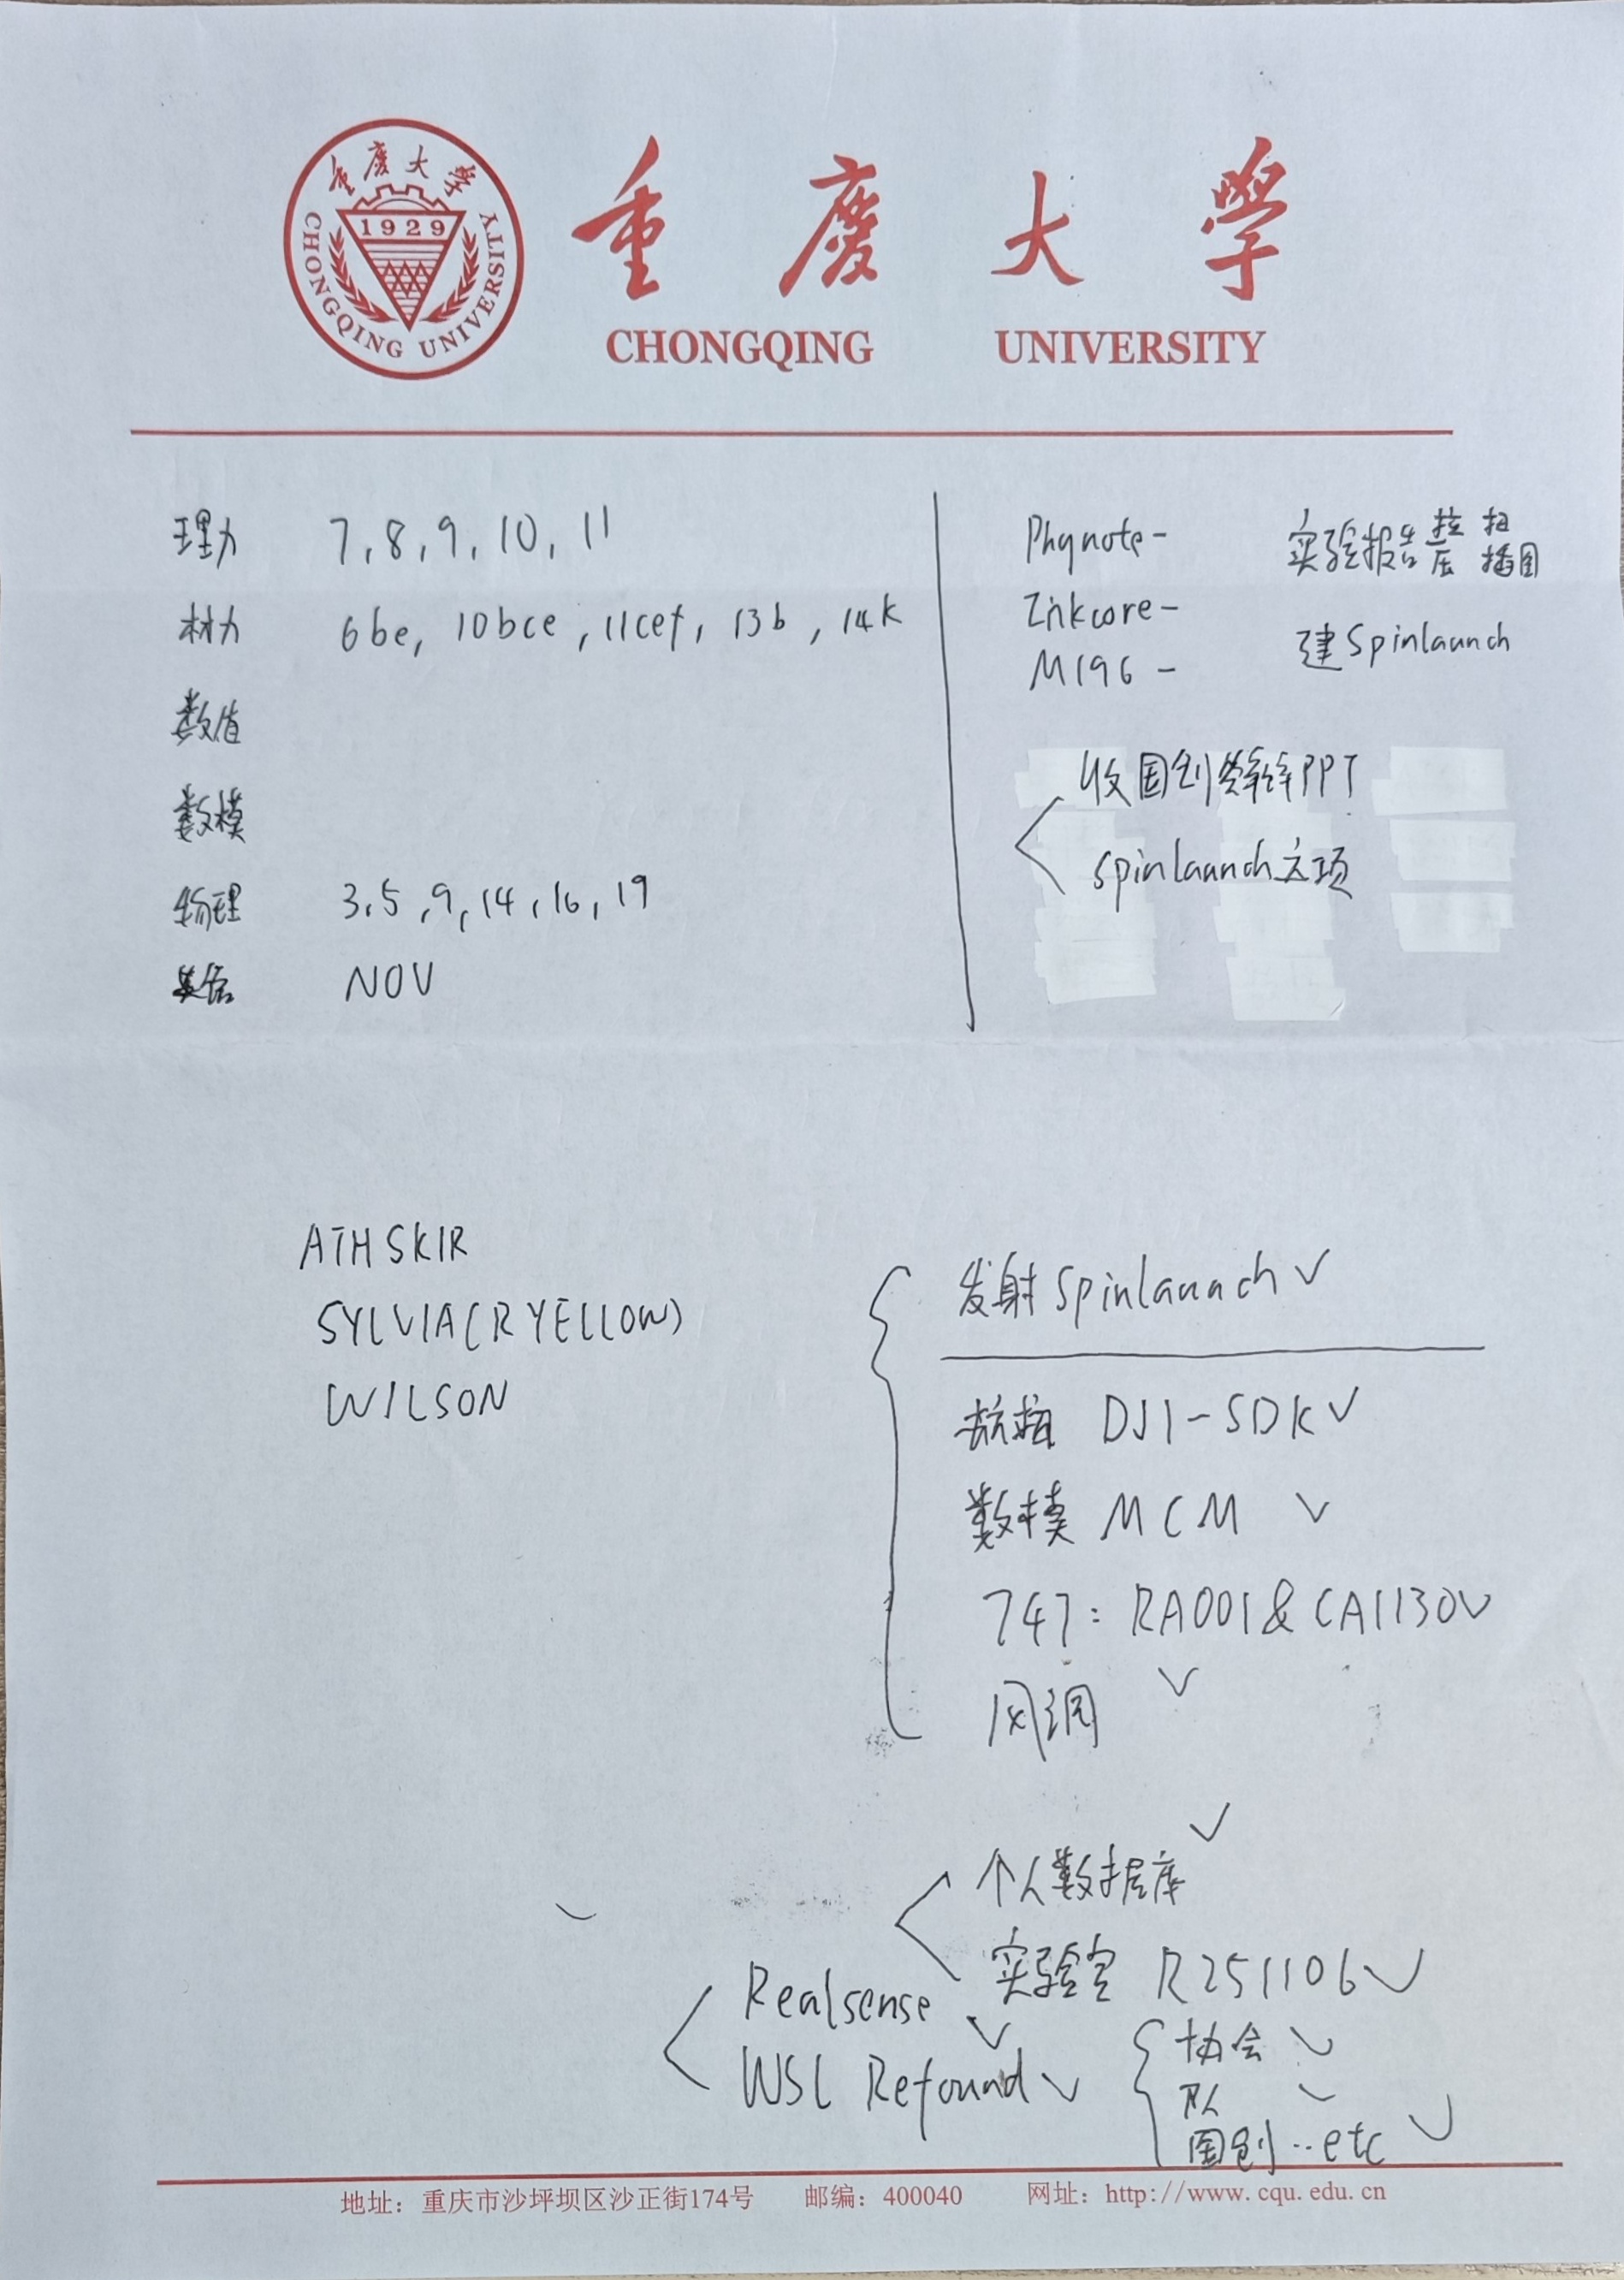 重慶大學
1929
CHONGQING UNIVERSITY
重慶大學
CHONGQING UNIVERSITY
理力 7,8,9,10,11
材力 6be, 10bce, 11cef, 13b, 14k
数值
数模
物理 3,5,9,14,16,19
英语 NOV
Phynote-
Inkcore-
M196-
实验报告 拉压 扫插图
建Spinlaunch
收国创答辩PPT
Spinlaunch立项
ATHSKIR
SYLVIA(R YELLOW)
WILSON
发射Spinlaunch✓
航拍 DJI-SDK✓
数模 MCM ✓
747: RA001&CA1130✓
风洞 ✓
个人数据库 ✓
实验室 R251106✓
Realsense ✓
WSL Refound✓
协会 ✓
队 ✓
国创..etc ✓
地址：重庆市沙坪坝区沙正街174号 邮编：400040 网址：http://www.cqu.edu.cn